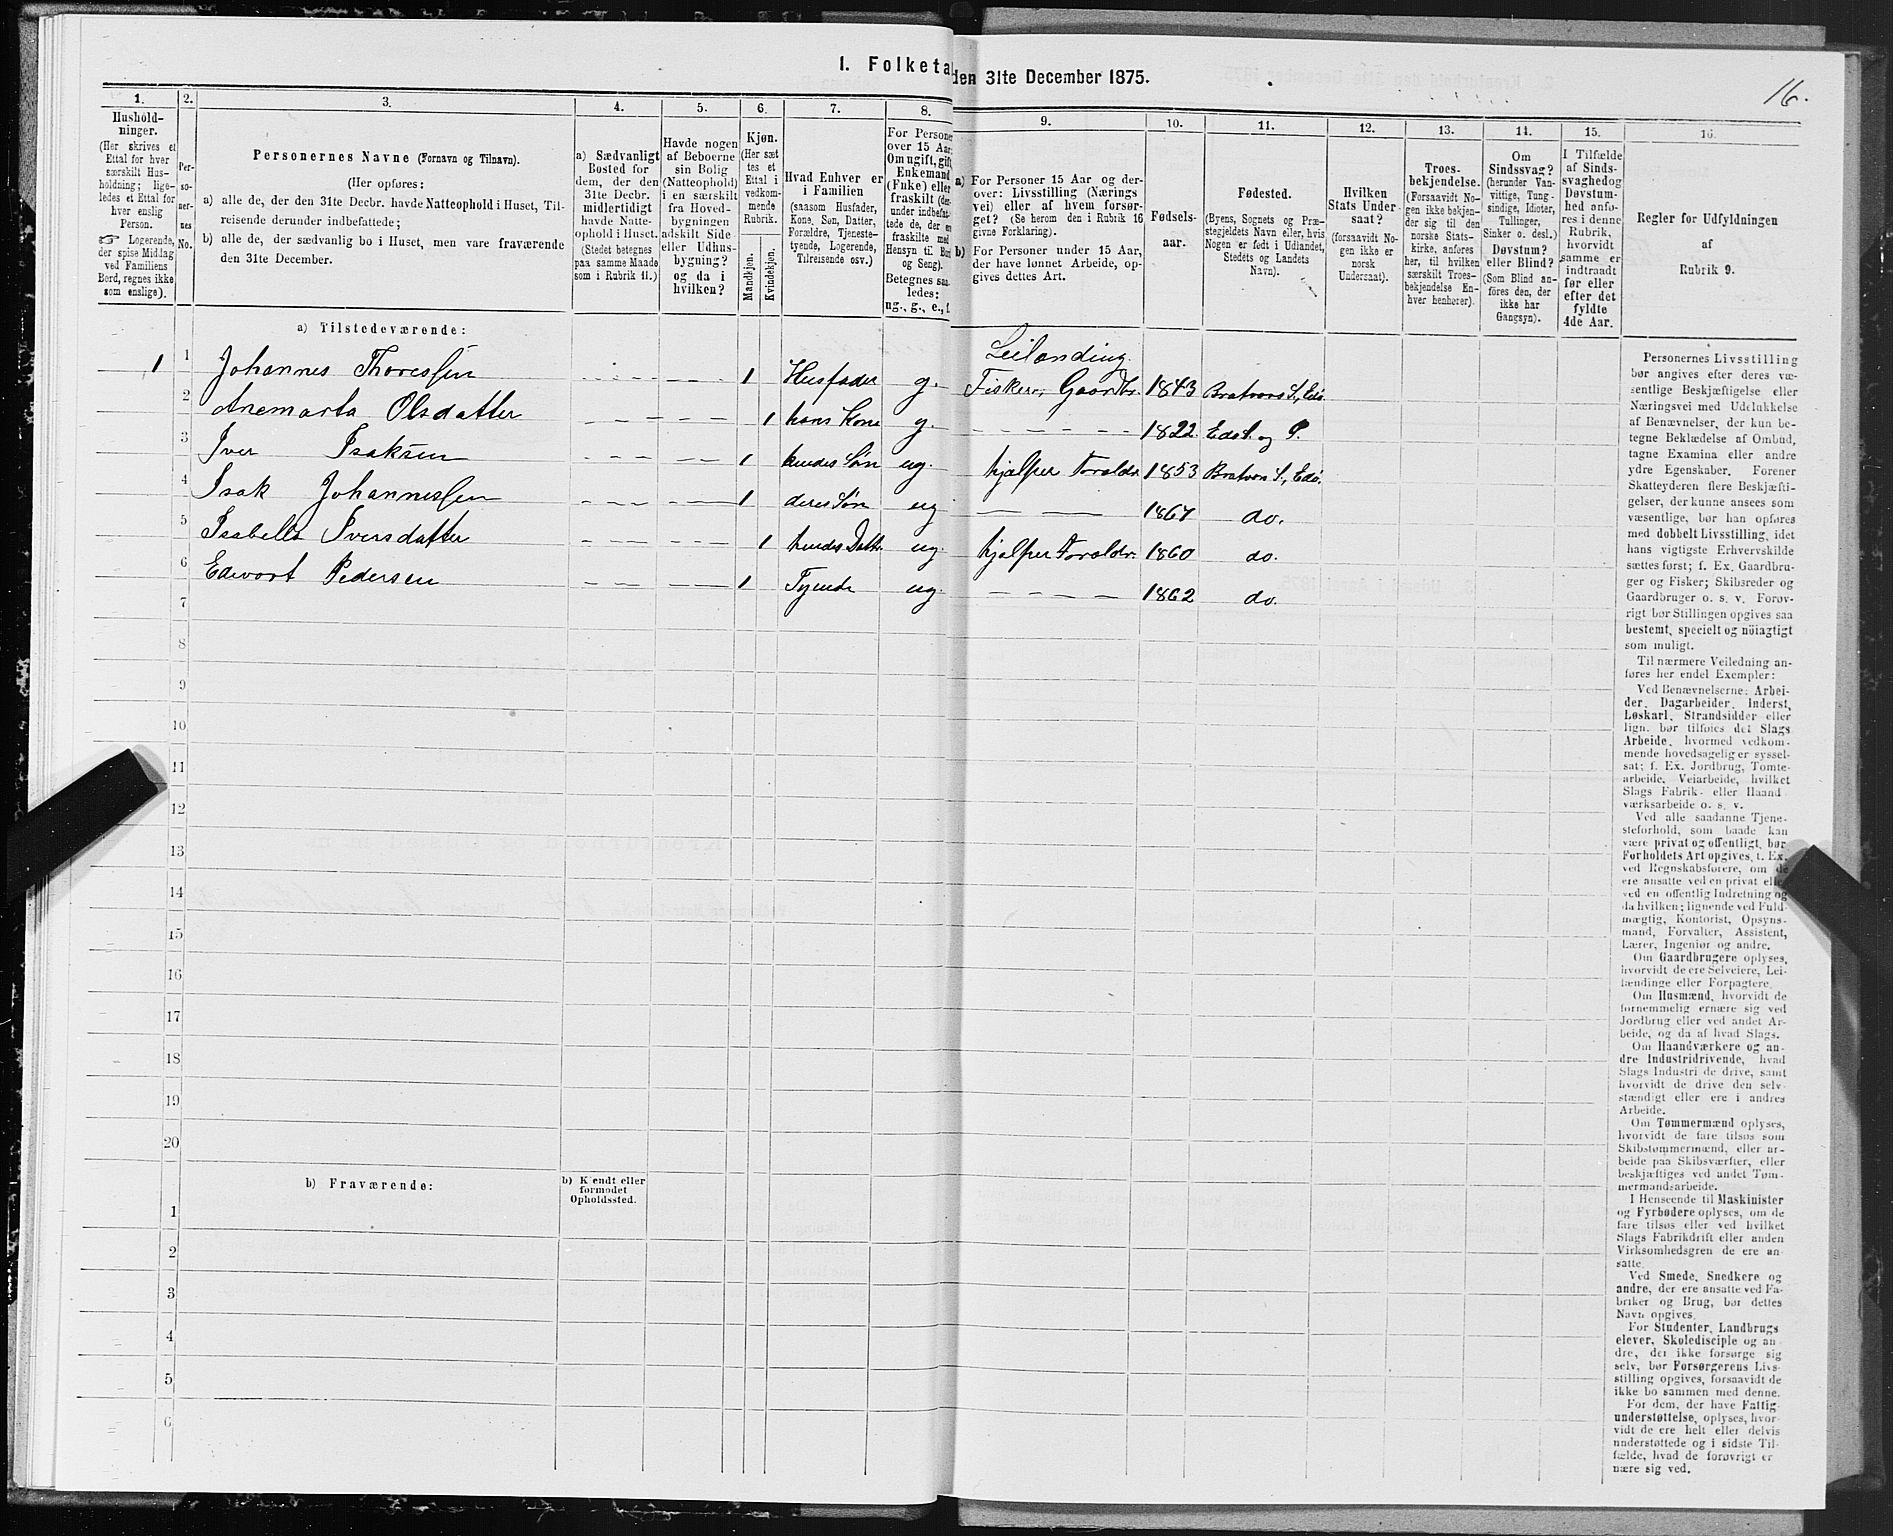 1. Folketal den 31te December 1875.
16.
1. 2. 3. 4. 5. 6. 7. 8. 9. 10. 11. 12. 13. 14. 15. 16.
Hushold-
ninger.
(Her skrives et
Ettal for hver
særskilt Hus-
holdning; lige-
ledes et Ettal for
hver enslig
Person.
☞ Logerende,
der spise Middag
ved Familiens
Bord, regnes ikke
som enslige).
Per-
so-
ner-
nes
No.
Personernes Navne (Fornavn og Tilnavn).
(Her opføres:
a) alle de, der den 31te Decbr. havde Natteophold i Huset, Til-
reisende derunder indbefattede;
b) alle de, der sædvanlig bo i Huset, men vare fraværende
den 31te December.
a) Sædvanligt
Bosted for
dem, der den
31te Decbr.
midlertidigt
havde Natte-
ophold i Huset.
(Stedet betegnes
paa samme Maade
som i Rubrik 11.)
Havde nogen
af Beboerne
sin Bolig
(Natteophold)
i en særskilt
fra Hoved-
bygningen
adskilt Side-
eller Udhus-
bygning?
og da i
hvilken?
Kjøn.
(Her sæt-
tes et
Ettal i
vedkom-
mende
Rubrik.
Mandkjøn.
Kvindekjøn.
Hvad Enhver er
i Familien
(saasom Husfader,
Kone, Søn, Datter,
Forældre, Tjeneste-
tyende, Logerende,
Tilreisende osv.)
For Personer
over 15 Aar:
Om ugift, gift,
Enkemand
(Enke) eller
fraskilt (der-
under indbefat-
tede de, der ere
fraskilte med
Hensyn til Bord
og Seng).
Betegnes saa-
ledes:
ug., g., e., f.
a) For Personer 15 Aar og der-
over: Livsstilling (Nærings
vei) eller af hvem forsør-
get? (Se herom den i Rubrik 16
givne Forklaring).
b) For Personer under 15 Aar,
der have lønnet Arbeide, op-
gives dettes Art.
Fødsels-
aar.
Fødested.
(Byens, Sognets og Præ-
stegjeldets Navn eller, hvis
Nogen er født i Udlandet,
Stedets og Landets
Navn).
Hvilken
Stats Under-
saat?
(forsaavidt No-
gen ikke er
norsk
Undersaat).
Troes-
bekjendelse.
(Forsaavidt No-
gen ikke bekjen-
der sig til den
norske Stats-
kirke, anføres
her, til hvilken
særskilt Troes-
bekjendelse En-
hver henhører).
Om
Sindssvag?
(herunder Van-
vittige, Tung-
sindige, Idioter,
Tullinger,
Sinker o. desl.)
Døvstum?
eller Blind?
(Som Blind an-
føres den, der
ikke har
Gangsyn).
I Tilfælde
af Sinds-
svaghed og
Døvstum-
hed anfø-
res i denne
Rubrik,
hvorvidt
samme er
indtraadt
før eller
efter det
fyldte
4de Aar.
Regler for Udfyldningen
af
Rubrik 9.
a) Tilstedeværende:
Leilending.
1 1 Johannes Thoressen 1 Husfader g. Fisker, Gaardbr. 1843 Bratvær S., Edø.
2 Anemarta Olsdatter 1 hans Kone g. 1822 Edø S. og P.
3 Iver Isaksen 1 hendes Søn ug. hjælper Foræld. 1853 Bratvær S., Edø.
4 Isak Johannessen 1 deres Søn ug 1867 do.
5 Isabella Iversdatter 1 hendes Datt. ug. hjælper Foræld. 1860 do.
6 Edevart Pedersen 1 Tyende ug. 1862 do.
7
8
9
10
11
12
13
14
15
16
17
18
19
20
b) Fraværende:
b) Kjendt eller
formodet
Opholdssted.
1
2
3
4
5
6
Personernes Livsstilling
bør angives efter deres væ-
sentlige Beskjæftigelse eller
Næringsvei med Udelukkelse
af Benævnelser, der kun be-
tegne Beklædelse af Ombud,
tagne Examina eller andre
ydre Egenskaber. Forener
Skatteyderen flere Beskjæfti-
gelser, der kunne ansees som
væsentlige, bør han opføres
med dobbelt Livsstilling, idet
hans vigtigste Erhvervskilde
sættes først; f. Ex. Gaardbru-
ger og Fisker; Skibsreder og
Gaardbruger o. s. v. Forøv-
rigt bør Stillingen opgives saa
bestemt, specielt og nöiagtigt
som muligt.
Til nærmere Veiledning an-
føres her endel Exempler:
Ved Benævnelserne: Arbei-
der, Dagarbeider, Inderst,
Løskarl, Strandsidder eller
lign. bør tilføies det Slags
Arbeide, hvormed vedkom-
mende hovedsagelig er syssel-
sat; f. Ex. Jordbrug, Tomte-
arbeide, Veiarbeide, hvilket
Slags Fabrik- eller Haand-
værksarbeide o. s. v.
Ved alle saadanne Tjene-
steforhold, som baade kan
være privat og offentligt, bør
Forholdets Art opgives, f. Ex.
ved Regnskabsførere, om de
ere ansatte ved en privat eller
ved en offentlig Indretning og
da hvilken; lignende ved Fuld-
mægtig, Kontorist, Opsyns-
mand, Forvalter, Assistent,
Lærer, Ingeniør og andre.
Om Gaardbrugere oplyses,
hvorvidt de ere Selveiere, Lei-
lændinge eller Forpagtere.
Om Husmænd, hvorvidt de
fornemmelig ernære sig ved
Jordbrug eller ved andet Ar-
beide, og da af hvad Slags.
Om Haandværkere og an-
dre Industridrivende, hvad
Slags Industri de drive, samt
hvorvidt de drive den selv-
stændigt eller ere i andres
Arbeide.
Om Tømmermænd oplyses,
hvorvidt de fare tilsøs som
Skibstømmermænd, eller ar-
beide paa Skibsværfter, eller
beskjæftiges ved andet Tøm-
mermandsarbeide.
I Henseende til Maskinister
og Fyrbødere oplyses, om de
fare tilsøs eller ved hvilket
Slags Fabrikdrift eller anden
Virksomhedsgren de ere an-
satte.
Ved Smede, Snedkere og
andre, der ere ansatte ved Fa-
briker og Brug, bør dettes
Navn opgives.
For Studenter, Landbrugs
elever, Skoledisciple og an-
dre, der ikke forsørge sig
selv, bør Forsørgerens Livs-
stilling opgives, forsaavidt de
ikke bo sammen med denne.
For dem, der have Fattig-
understøttelse, oplyses, hvor-
vidt de ere helt eller delvis
understøttede og i sidste Til-
fælde, hvad de forøvrigt er
nære sig ved.